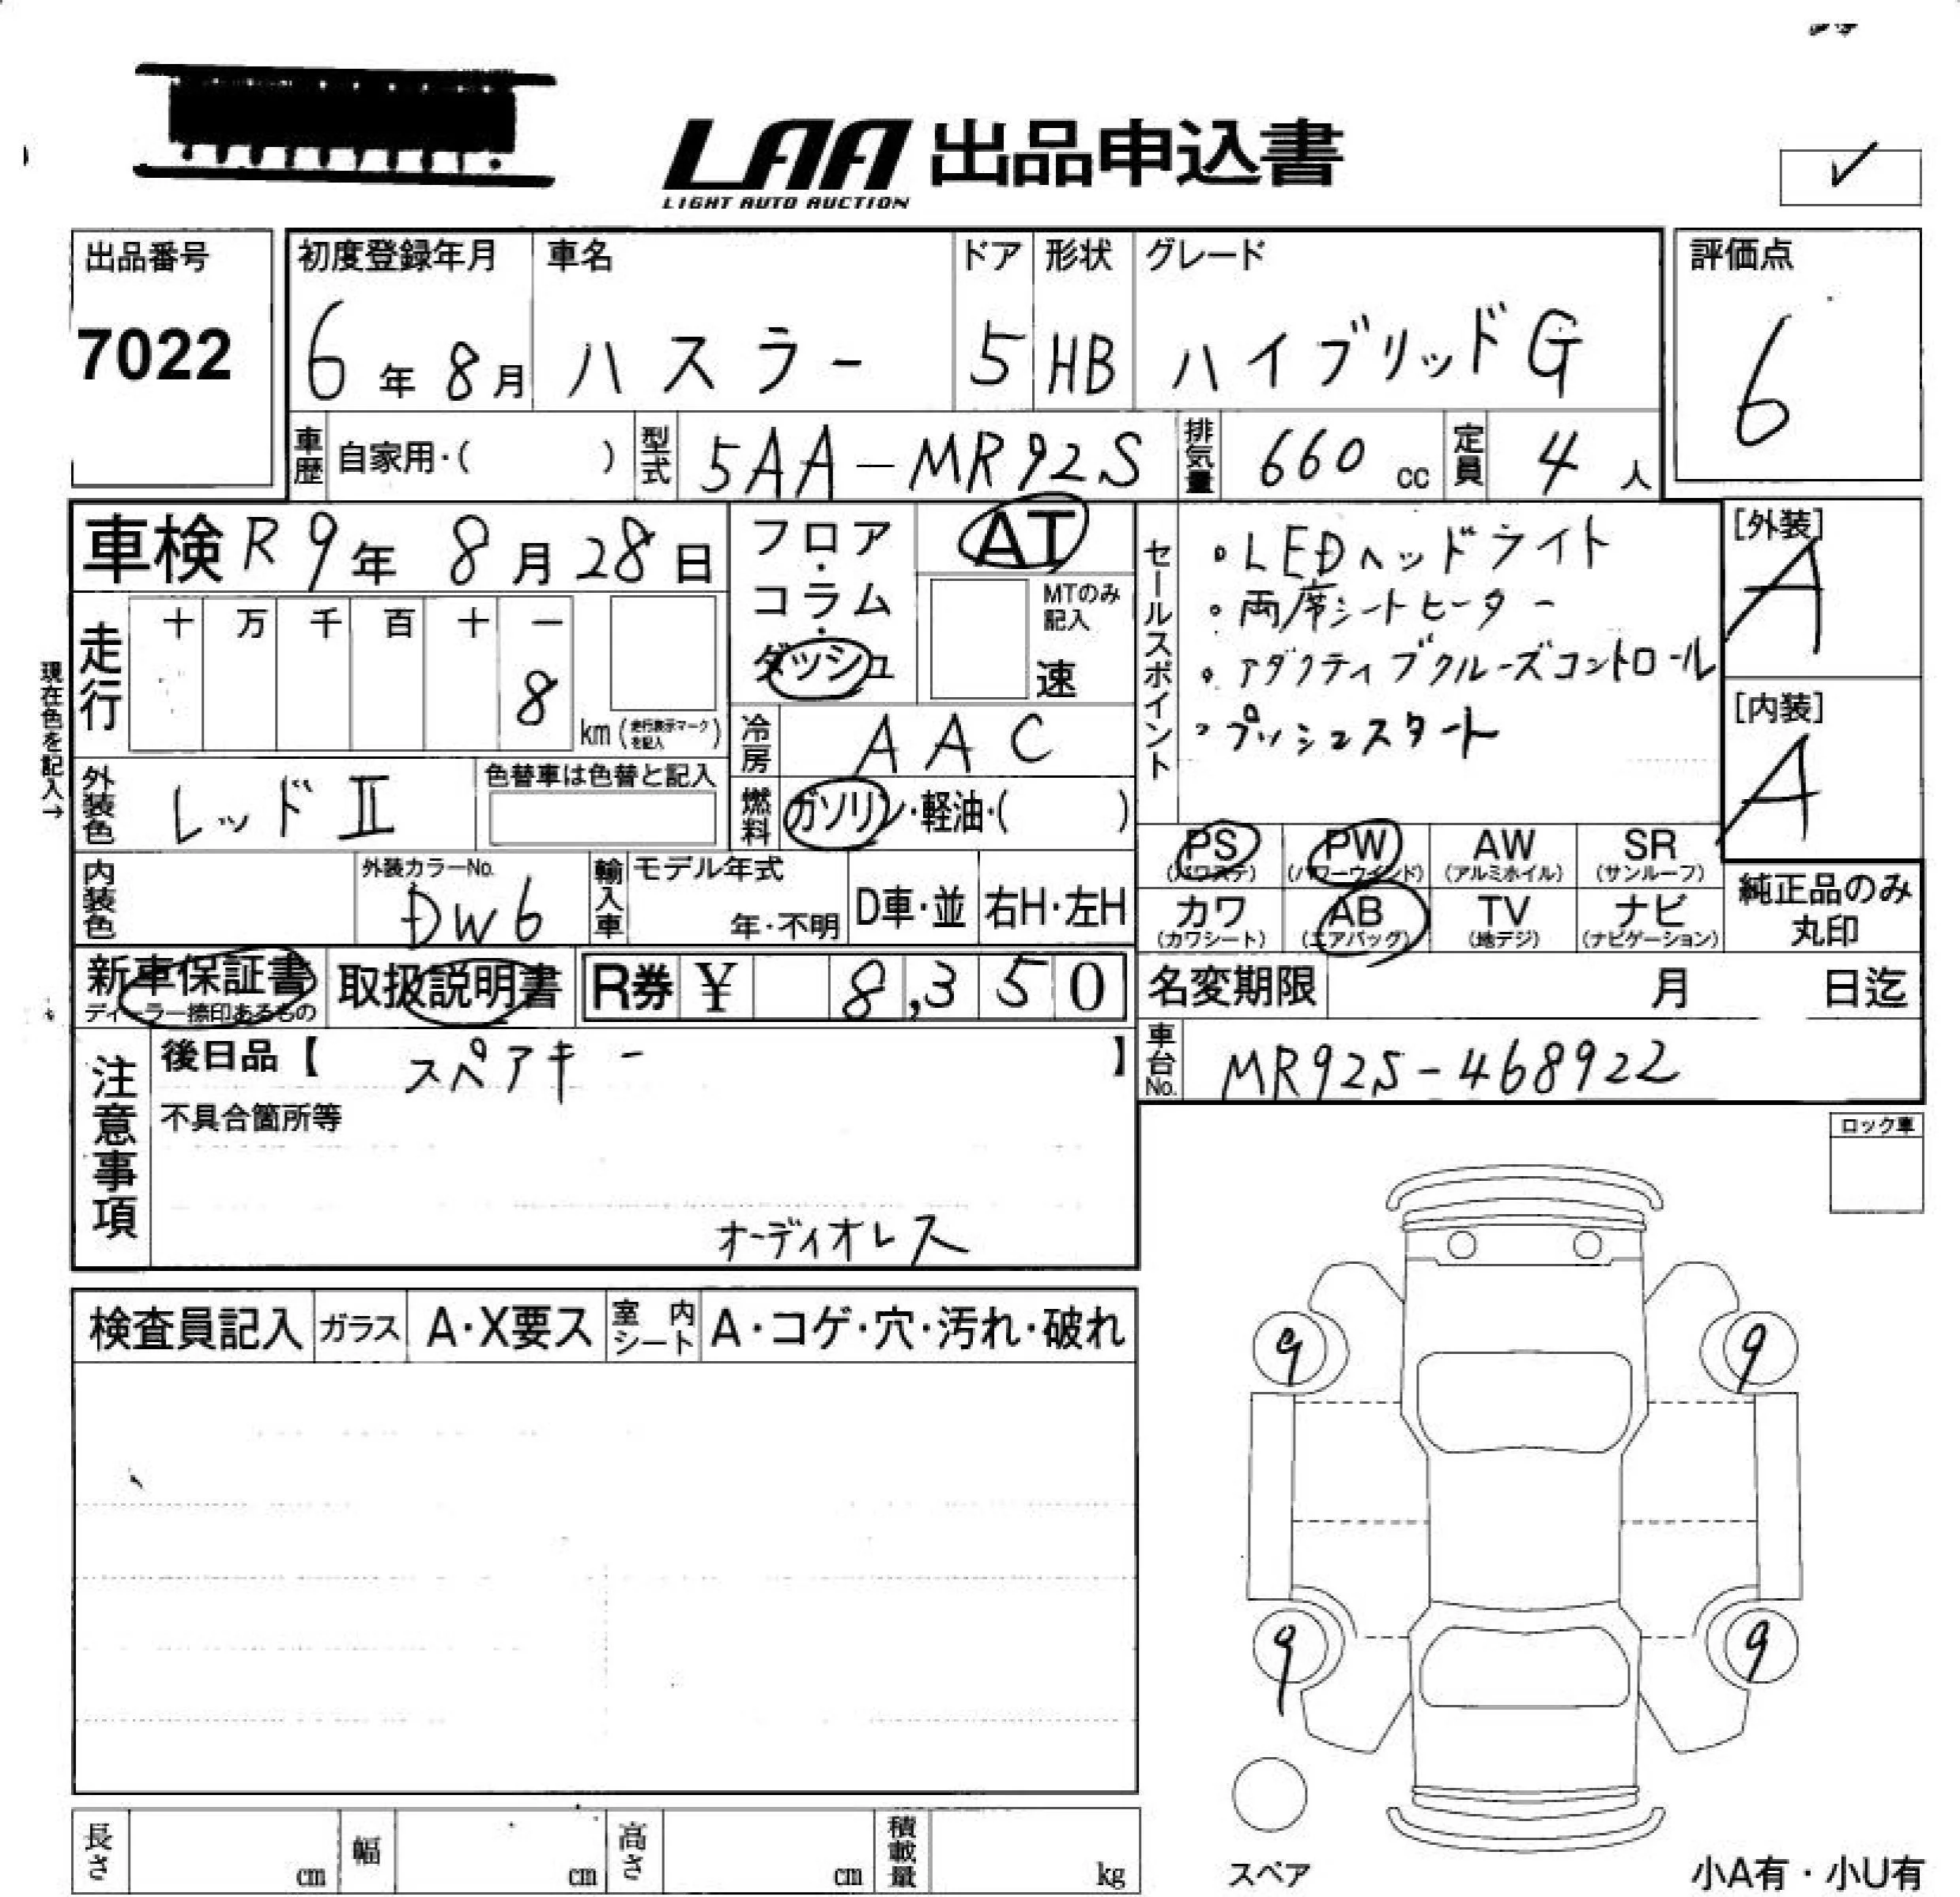 LAA 出品申込書
LIGHT AUTO AUCTION
出品番号
7022
初度登録年月
6年8月
車名
ハスラー
ドア
5
形状
HB
グレード
ハイブリッドG
評価点
6
車歴 自家用・( )
型式 5AA-MR92S
排気量 660 cc
定員 4 人
車検 R9年 8月 28日
走行 十 万 千 百 十 一
8
km (走行表示マークを記入)
現在色を記入→
外装色 レッドⅡ
色替車は色替と記入
内装色
外装カラーNo.
DW6
フロア・コラム・ダッシュ
AT
MTのみ記入
速
冷房 AAC
燃料 ガソリン・軽油・( )
輸入車 モデル年式
年・不明
D車・並
右H・左H
セールスポイント
・LEDヘッドライト
・両席シートヒーター
・アダクティブクルーズコントロール
・プッシュスタート
[外装]
A
[内装]
A
PS (パワステ)
PW (パワーウインド)
AW (アルミホイル)
SR (サンルーフ)
カワ (カワシート)
AB (エアバッグ)
TV (地デジ)
ナビ (ナビゲーション)
純正品のみ
丸印
新車保証書
ディーラー捺印あるもの
取扱説明書
R券 ¥ 8,350
名変期限 月 日迄
車台No. MR92S-468922
注意事項
後日品【 スペアキー 】
不具合箇所等
オーディオレス
ロック車
検査員記入 ガラス A・X要ス 室内シート A・コゲ・穴・汚れ・破れ
9 9
9 9
スペア
小A有・小U有
長さ cm 幅 cm 高さ cm 積載量 kg